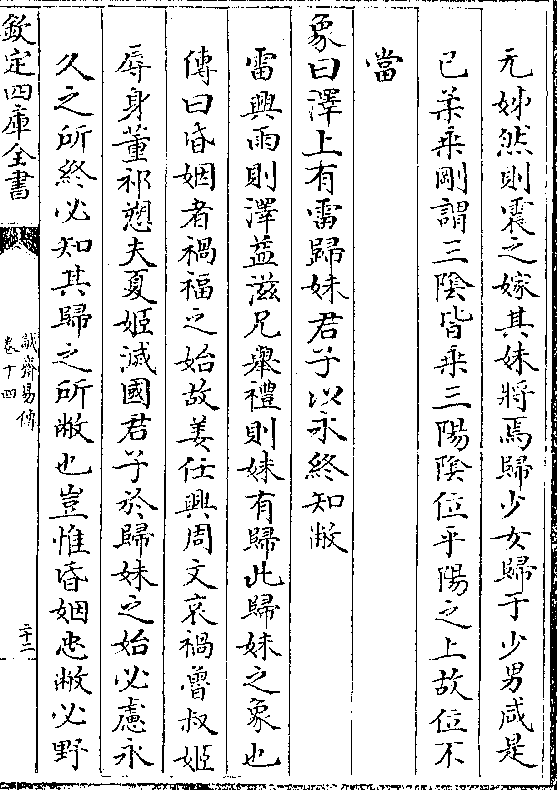 无娣然則震之嫁其妹將焉歸少女歸于少男咸是
已葇乗剛謂三陰皆乗三陽陰位乎陽之上故位不
當
象曰澤上有雷歸妹君子以永終知敝
雷興雨則澤益滋兄舉禮則妹有歸此歸妹之象也
傳曰昏姻者禍福之始故姜任興周文哀禍魯叔姬
辱身董祁愬夫夏姬滅國君子於歸妹之始必慮永
久之所終必知其歸之所敝也豈惟昏姻忠敝必野
欽定四庫全書
誠齋易傳
卷十四
二十二